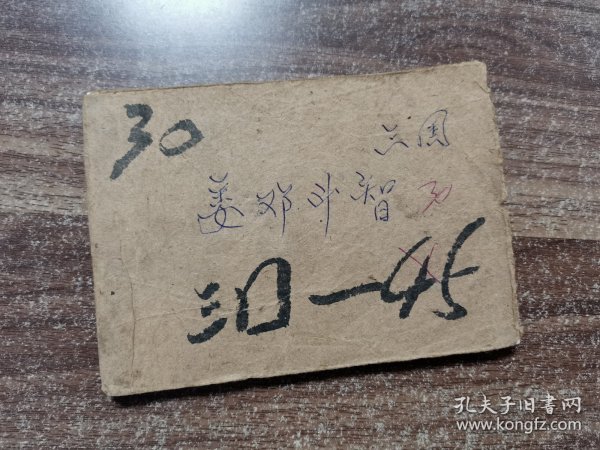 30
三国
姜邓斗智 30
三囗一45
孔夫子旧書网
www.kongfz.com